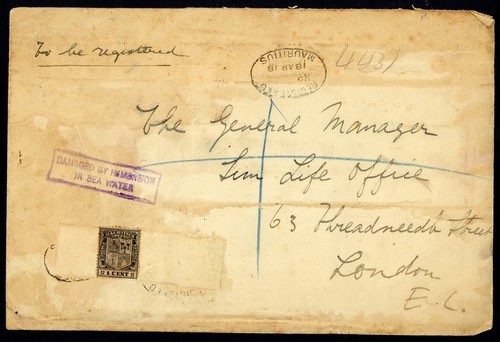 To be registered
4439
REGISTERED
18 AP 18
MAURITIUS
The General Manager
Sun Life Office
63 Threadneedle Street
London
E.C.
DAMAGED BY IMMERSION
IN SEA WATER
MAURITIUS
1 CENT